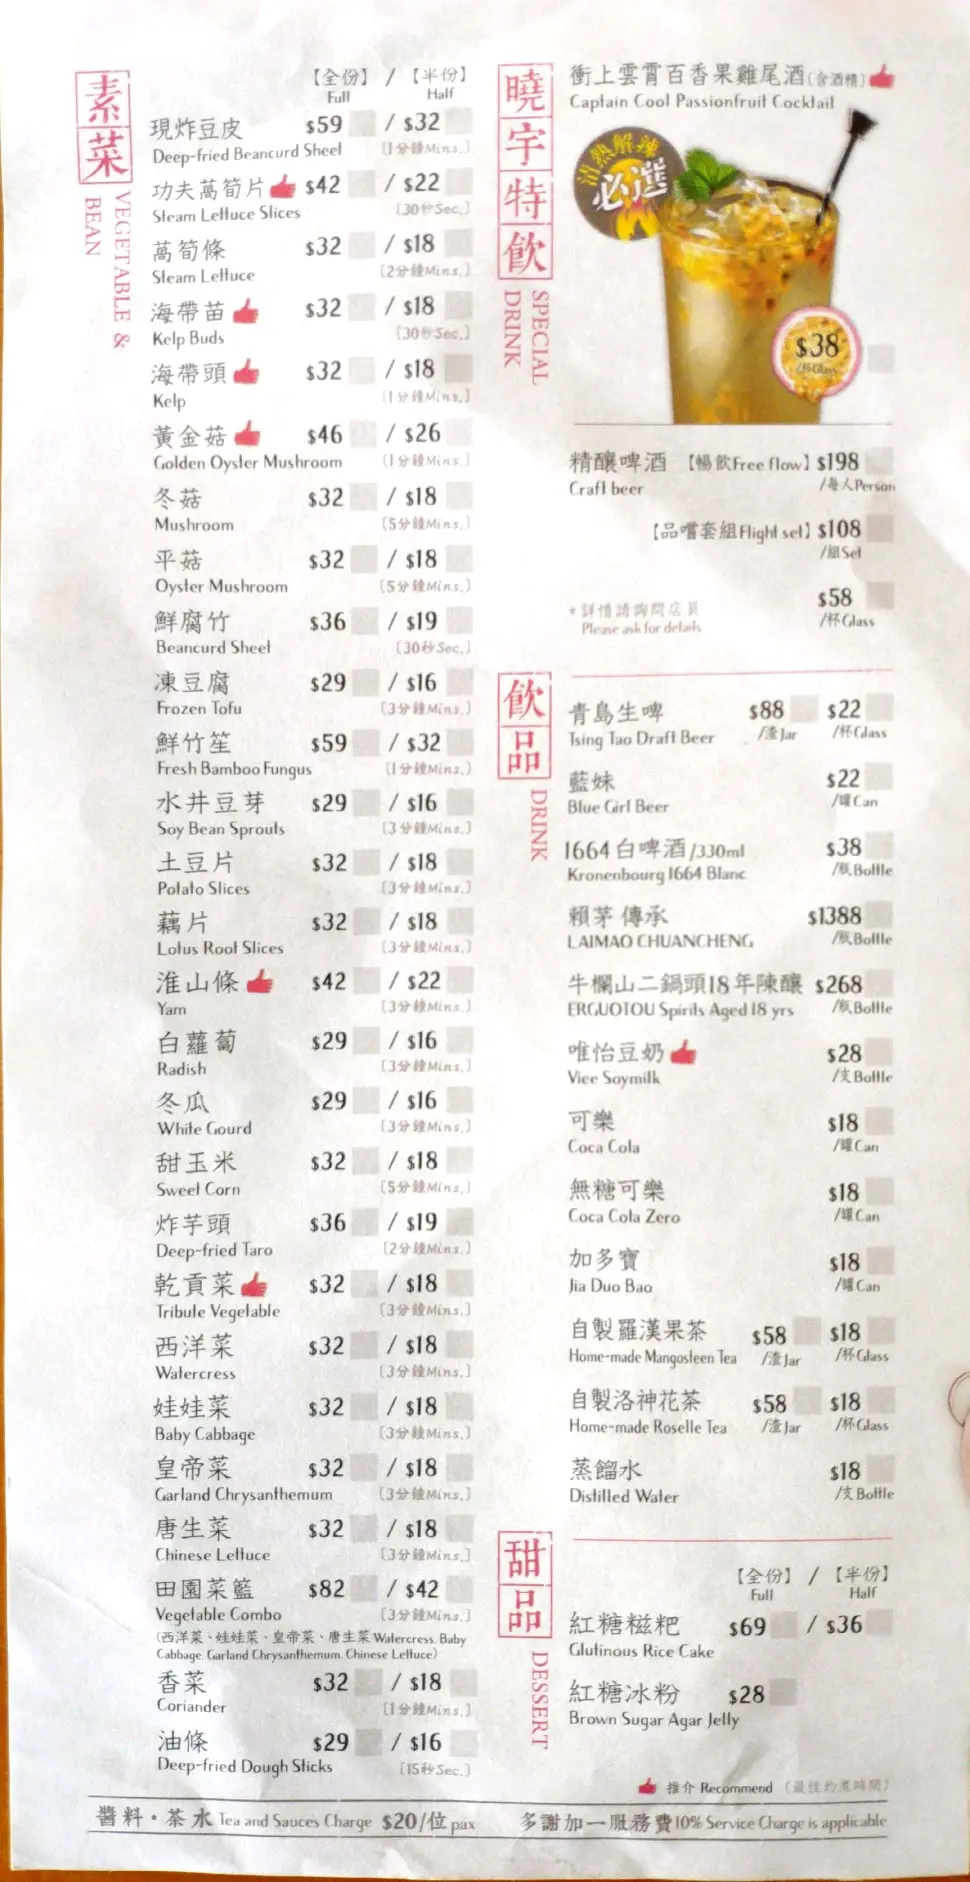 素菜
VEGETABLE &
BEAN
【全份】 / 【半份】
Full Half
現炸豆皮 $59 / $32
Deep-fried Beancurd Sheet 〔1分鐘Mins.〕
功夫萵筍片 $42 / $22
Steam Lettuce Slices 〔30秒Sec.〕
萵筍條 $32 / $18
Steam Lettuce 〔2分鐘Mins.〕
海帶苗 $32 / $18
Kelp Buds 〔30秒Sec.〕
海帶頭 $32 / $18
Kelp 〔1分鐘Mins.〕
黃金菇 $46 / $26
Golden Oyster Mushroom 〔1分鐘Mins.〕
冬菇 $32 / $18
Mushroom 〔5分鐘Mins.〕
平菇 $32 / $18
Oyster Mushroom 〔5分鐘Mins.〕
鮮腐竹 $36 / $19
Beancurd Sheet 〔30秒Sec.〕
凍豆腐 $29 / $16
Frozen Tofu 〔3分鐘Mins.〕
鮮竹笙 $59 / $32
Fresh Bamboo Fungus 〔1分鐘Mins.〕
水井豆芽 $29 / $16
Soy Bean Sprouts 〔3分鐘Mins.〕
土豆片 $32 / $18
Potato Slices 〔3分鐘Mins.〕
藕片 $32 / $18
Lotus Root Slices 〔3分鐘Mins.〕
淮山條 $42 / $22
Yam 〔3分鐘Mins.〕
白蘿蔔 $29 / $16
Radish 〔3分鐘Mins.〕
冬瓜 $29 / $16
White Gourd 〔3分鐘Mins.〕
甜玉米 $32 / $18
Sweet Corn 〔5分鐘Mins.〕
炸芋頭 $36 / $19
Deep-fried Taro 〔2分鐘Mins.〕
乾貢菜 $32 / $18
Tribute Vegetable 〔3分鐘Mins.〕
西洋菜 $32 / $18
Watercress 〔3分鐘Mins.〕
娃娃菜 $32 / $18
Baby Cabbage 〔3分鐘Mins.〕
皇帝菜 $32 / $18
Garland Chrysanthemum 〔3分鐘Mins.〕
唐生菜 $32 / $18
Chinese Lettuce 〔3分鐘Mins.〕
田園菜籃 $82 / $42
Vegetable Combo 〔3分鐘Mins.〕
(西洋菜、娃娃菜、皇帝菜、唐生菜 Watercress, Baby
Cabbage, Garland Chrysanthemum, Chinese Lettuce)
香菜 $32 / $18
Coriander 〔1分鐘Mins.〕
油條 $29 / $16
Deep-fried Dough Sticks 〔15秒Sec.〕
曉宇特飲
SPECIAL
DRINK
衝上雲霄百香果雞尾酒(含酒精)
Captain Cool Passionfruit Cocktail
清熱解辣
必選
$38
/杯Glass
精釀啤酒 【暢飲Free flow】 $198
Craft beer /每人Person
【品嚐套組Flight set】 $108
/組Set
$58
*詳情請詢問店員 /杯Glass
Please ask for details
飲品
DRINK
青島生啤 $88 $22
Tsing Tao Draft Beer /渣Jar /杯Glass
藍妹 $22
Blue Girl Beer /罐Can
1664白啤酒/330ml $38
Kronenbourg 1664 Blanc /瓶Bottle
賴茅 傳承 $1388
LAIMAO CHUANCHENG /瓶Bottle
牛欄山二鍋頭18年陳釀 $268
ERGUOTOU Spirits Aged 18 yrs /瓶Bottle
唯怡豆奶 $28
Viee Soymilk /支Bottle
可樂 $18
Coca Cola /罐Can
無糖可樂 $18
Coca Cola Zero /罐Can
加多寶 $18
Jia Duo Bao /罐Can
自製羅漢果茶 $58 $18
Home-made Mangosteen Tea /渣Jar /杯Glass
自製洛神花茶 $58 $18
Home-made Roselle Tea /渣Jar /杯Glass
蒸餾水 $18
Distilled Water /支Bottle
甜品
DESSERT
【全份】 / 【半份】
Full Half
紅糖糍粑 $69 / $36
Glutinous Rice Cake
紅糖冰粉 $28
Brown Sugar Agar Jelly
推介 Recommend 〔最佳灼煮時間〕
醬料・茶水 Tea and Sauces Charge $20/位pax 多謝加一服務費10% Service Charge is applicable